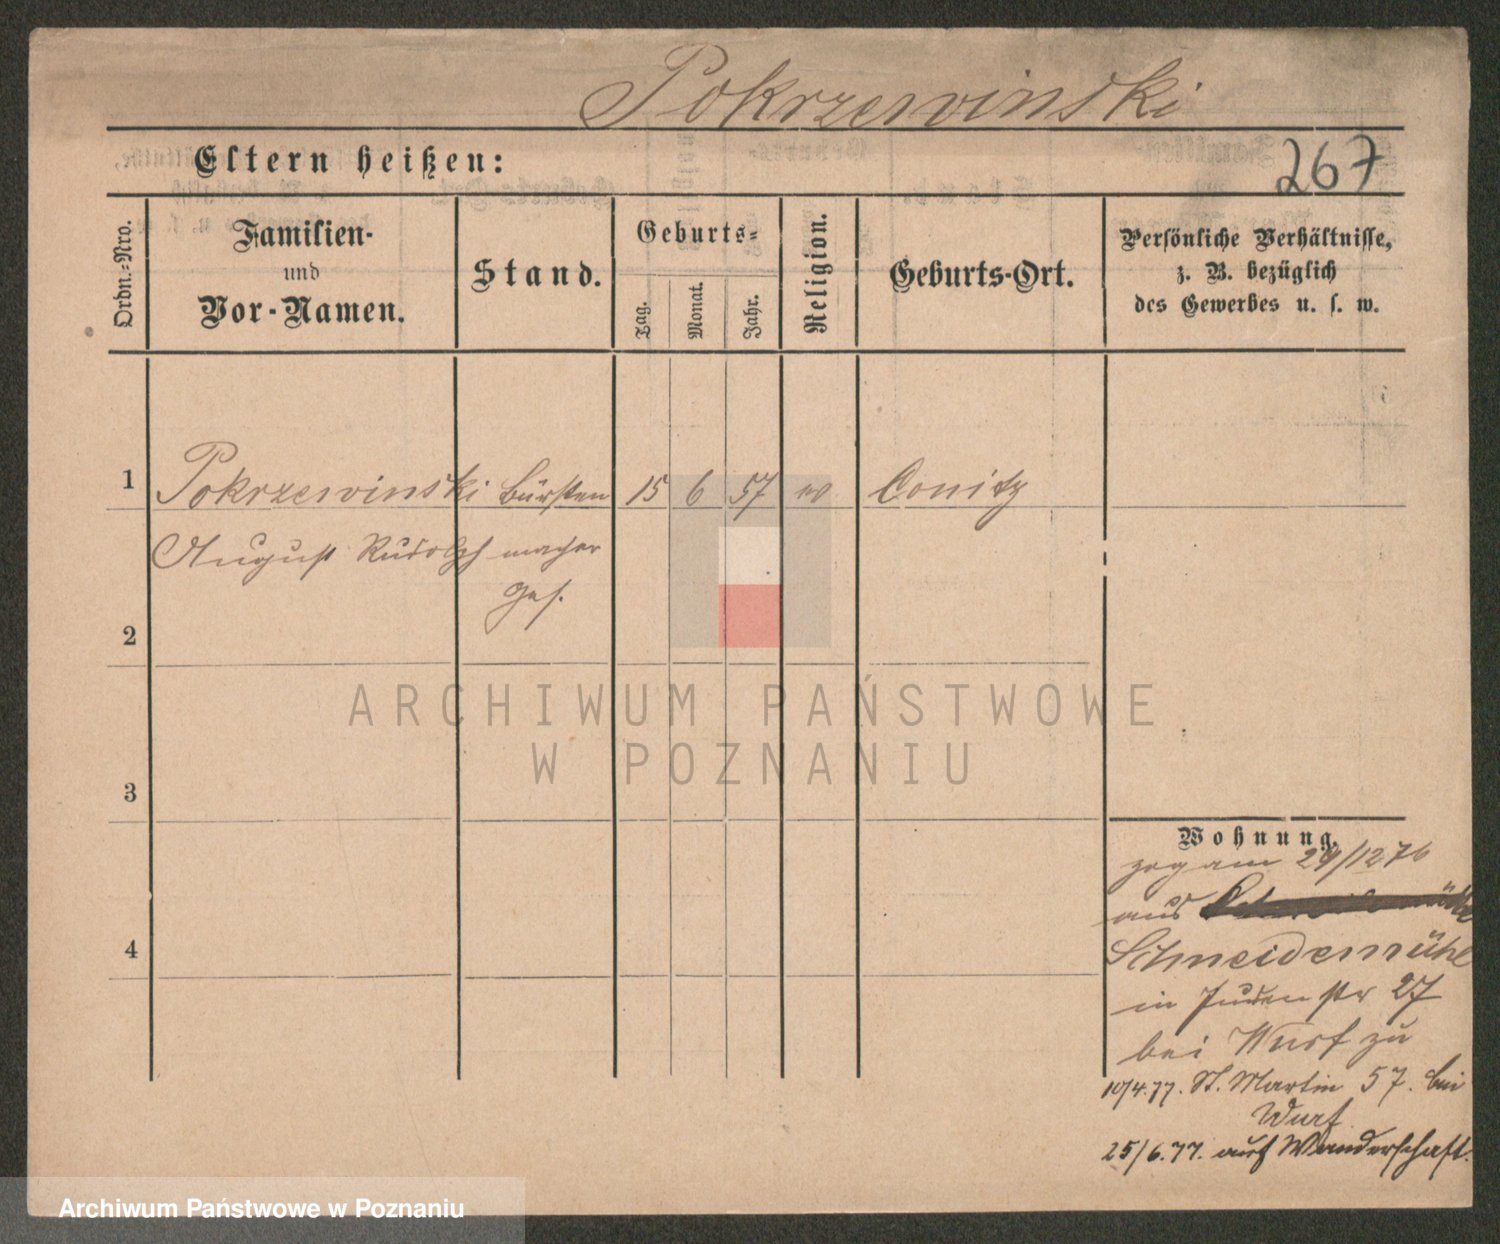 Pokrzewinski
Eltern heißen:
267
Ordn.-Nro.
Familien-
und
Vor-Namen.
Stand.
Geburts-
Tag.
Monat.
Jahr.
Religion.
Geburts-Ort.
Persönliche Verhältnisse,
z. B. bezüglich
des Gewerbes u. s. w.
1 Pokrzewinski Bürsten 15 6 57 ev Conitz
August Rudolph macher
Ges.
2
3
4
Wohnung.
zog am 29/12 76
aus
Schneidemühl
in Juden str 27
bei Wurf zu
10/4.77. St. Martin 57. bei
Wurf
25/6.77. auf Wanderschaft.
ARCHIWUM PAŃSTWOWE
W POZNANIU
Archiwum Państwowe w Poznaniu